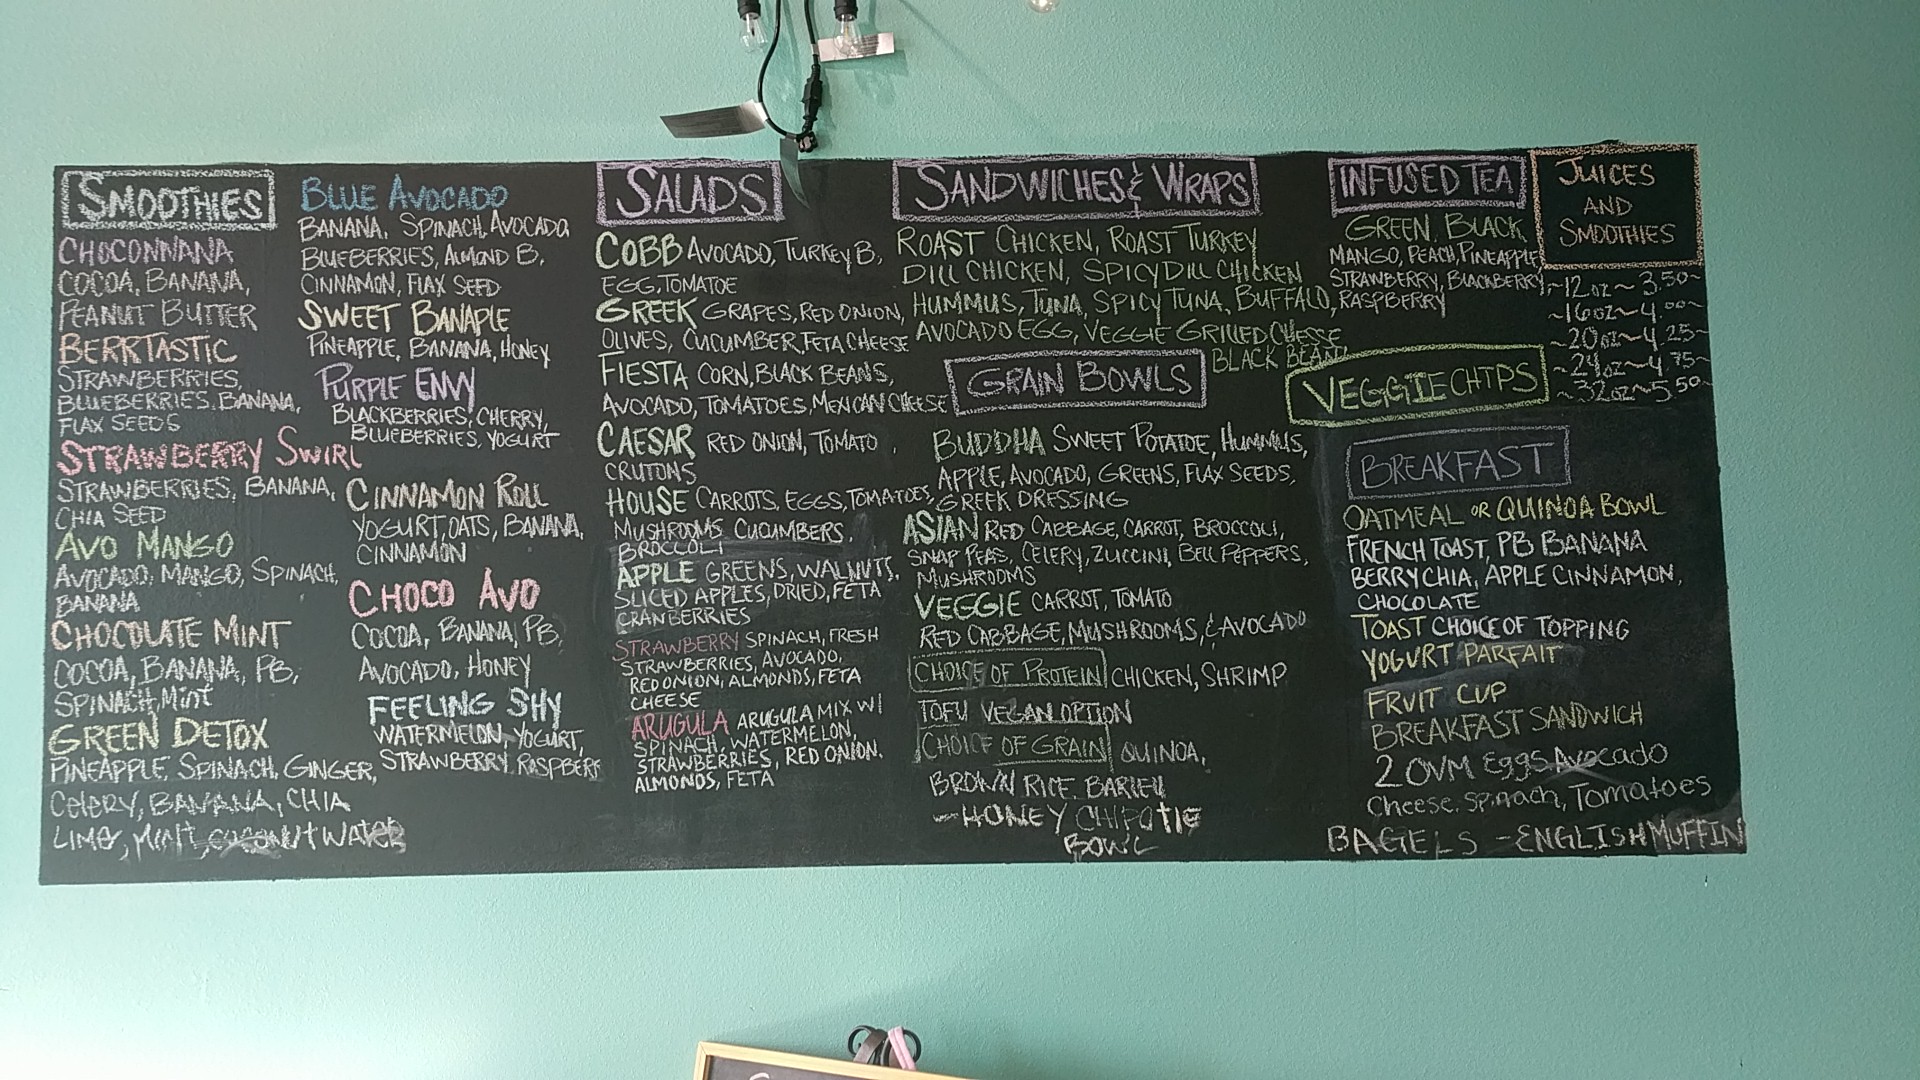 SMOOTHIES
CHOCONNANA
COCOA, BANANA,
PEANUT BUTTER
BERRTASTIC
STRAWBERRIES,
BLUEBERRIES, BANANA,
FLAX SEEDS
STRAWBERRY SWIRL
STRAWBERRIES, BANANA,
CHIA SEED
AVO MANGO
AVOCADO, MANGO, SPINACH,
BANANA
CHOCOLATE MINT
COCOA, BANANA, PB,
SPINACH, Mint
GREEN DETOX
PINEAPPLE, SPINACH, GINGER,
Celery, BANANA, CHIA
LIME, Mint, COCONUT WATER
BLUE AVOCADO
BANANA, SPINACH, AVOCADO
BLUEBERRIES, ALMOND B,
CINNAMON, FLAX SEED
SWEET BANAPLE
PINEAPPLE, BANANA, HONEY
PURPLE ENVY
BLACKBERRIES, CHERRY,
BLUEBERRIES, YOGURT
CINNAMON ROLL
YOGURT, OATS, BANANA,
CINNAMON
CHOCO AVO
COCOA, BANANA, PB,
AVOCADO, HONEY
FEELING SHY
WATERMELON, YOGURT,
STRAWBERRY, RASPBERR
SALADS
COBB AVOCADO, TURKEY B,
EGG, TOMATOE
GREEK GRAPES, RED ONION,
OLIVES, CUCUMBER, FETA CHEESE
FIESTA CORN, BLACK BEANS,
AVOCADO, TOMATOES, MEXICAN CHEESE
CAESAR RED ONION, TOMATO,
CRUTONS
HOUSE CARROTS, EGGS, TOMATOES,
MUSHROOMS CUCUMBERS,
BROCCOLI
APPLE GREENS, WALNUTS,
SLICED APPLES, DRIED, FETA
CRANBERRIES
STRAWBERRY SPINACH, FRESH
STRAWBERRIES, AVOCADO,
RED ONION, ALMONDS, FETA
CHEESE
ARUGULA ARUGULA MIX W/
SPINACH, WATERMELON,
STRAWBERRIES, RED ONION.
ALMONDS, FETA
SANDWICHES & WRAPS
ROAST CHICKEN, ROAST TURKEY
DILL CHICKEN, SPICY DILL CHICKEN
HUMMUS, TUNA, SPICY TUNA, BUFFALO,
AVOCADO EGG, VEGGIE GRILLED CHESSE
BLACK BEAN
GRAIN BOWLS
BUDDHA SWEET POTATOE, HUMMUS,
APPLE, AVOCADO, GREENS, FLAX SEEDS,
GREEK DRESSING
ASIAN RED CABBAGE, CARROT, BROCCOLI,
SNAP PEAS, CELERY, ZUCCINI, BELL PEPPERS,
MUSHROOMS
VEGGIE CARROT, TOMATO
RED CABBAGE, MUSHROOMS, & AVOCADO
CHOICE OF PROTEIN CHICKEN, SHRIMP
TOFU VEGAN OPTION
CHOICE OF GRAIN QUINOA,
BROWN RICE, BARLEY
-HONEY CHIPOTLE
BOWL
INFUSED TEA
GREEN, BLACK
MANGO, PEACH, PINEAPPLE
STRAWBERRY, BLACKBERRY,
RASPBERRY
JUICES
AND
SMOOTHIES
~12oz~ 3.50~
~16oz~4.00~
~20oz~4.25~
~24oz~4.75~
~32oz~5.50~
VEGGIE CHIPS
BREAKFAST
OATMEAL OR QUINOA BOWL
FRENCH TOAST, PB BANANA
BERRY CHIA, APPLE CINNAMON,
CHOCOLATE
TOAST CHOICE OF TOPPING
YOGURT PARFAIT
FRUIT CUP
BREAKFAST SANDWICH
2 OVM Eggs Avocado
Cheese, Spinach, Tomatoes
BAGELS - ENGLISH MUFFIN